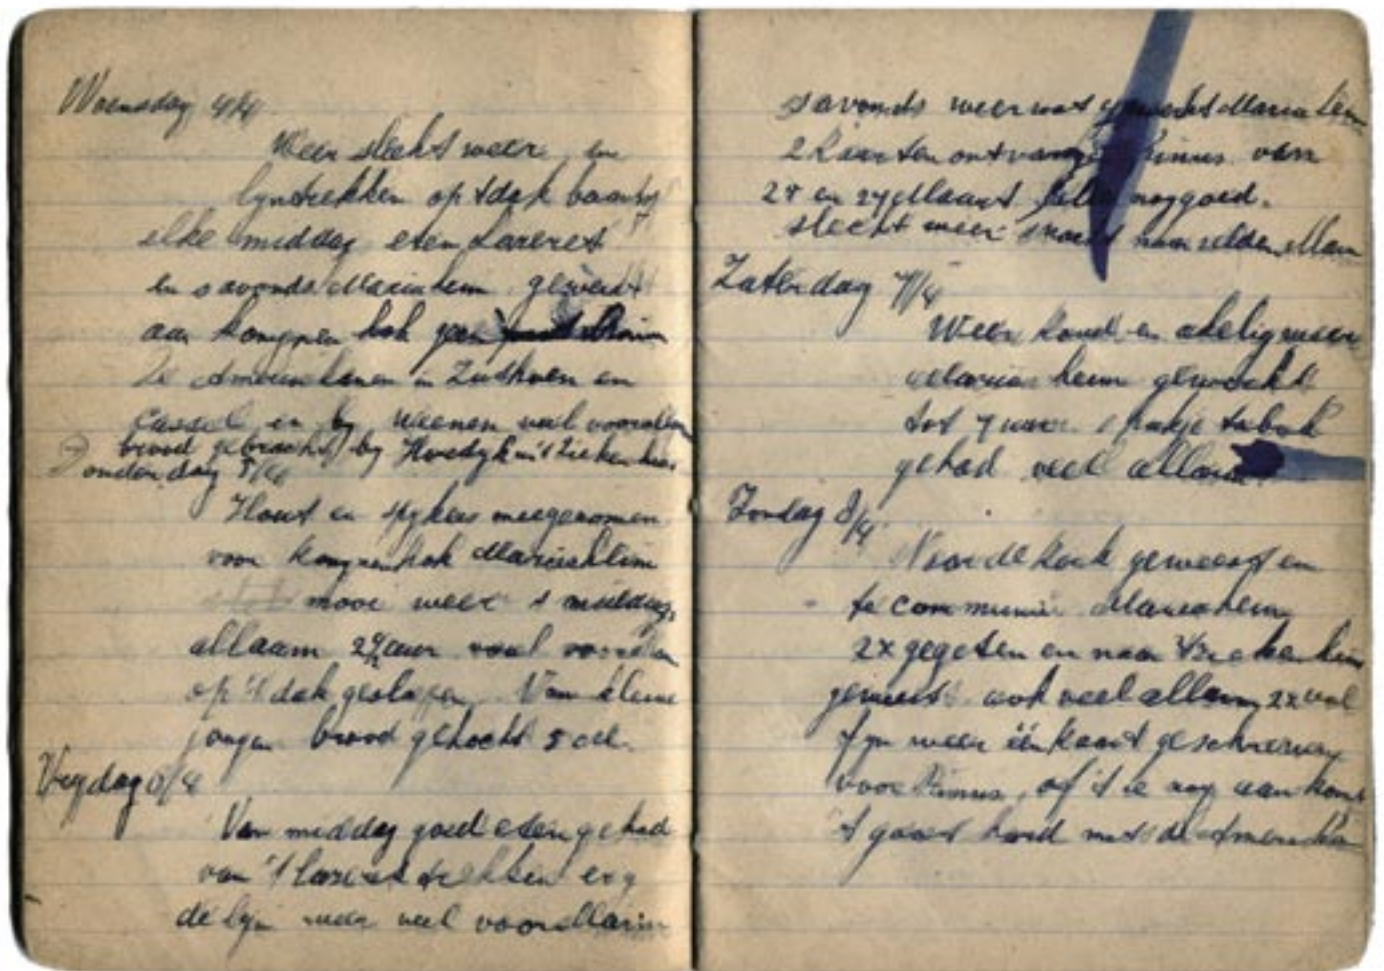 Woensdag 4/4
Weer slecht weer en
lyntrekken op t dak
elke middag eten Lazeret
en s avonds Mariahem gewerkt
aan konynen hok
De Amerikanen in Zutphen en
Cassel en by Weenen veel vooralarm
brood gebracht by in 't Ziekenhuis
Donderdag 5/4
Hout en spykers meegenomen
voor konynenhok Mariaheim
mooi weer s middags
allaam 2½ uur veel vooralam
op 't dak geslapen Van kleine
jongen brood gekocht 5 M.
Vrijdag 6/4
Van middag goed eten gehad
van 't Lazaret trekken erg
de lyn weer veel voorallarm
s avonds weer wat gewerkt Mariahem
2 Kaarten ontvangen Rinus van
24 en 27 Maart alles nog goed.
slecht weer
Zaterdag 7/4
Weer koud en akelig weer
Mariaheim gewerkt
tot 7 uur 1 pakje tabak
gehad veel allarm
Zondag 8/4
Naar de kerk geweest en
te communie Mariaheim
2x gegeten en naar 't Ziekenhuis
geweest ook veel allarm 2x vol
fyn weer één kaart geschreven
voor Rinus, of is ie nog aan komt
't gaat hard met de Amerikanen